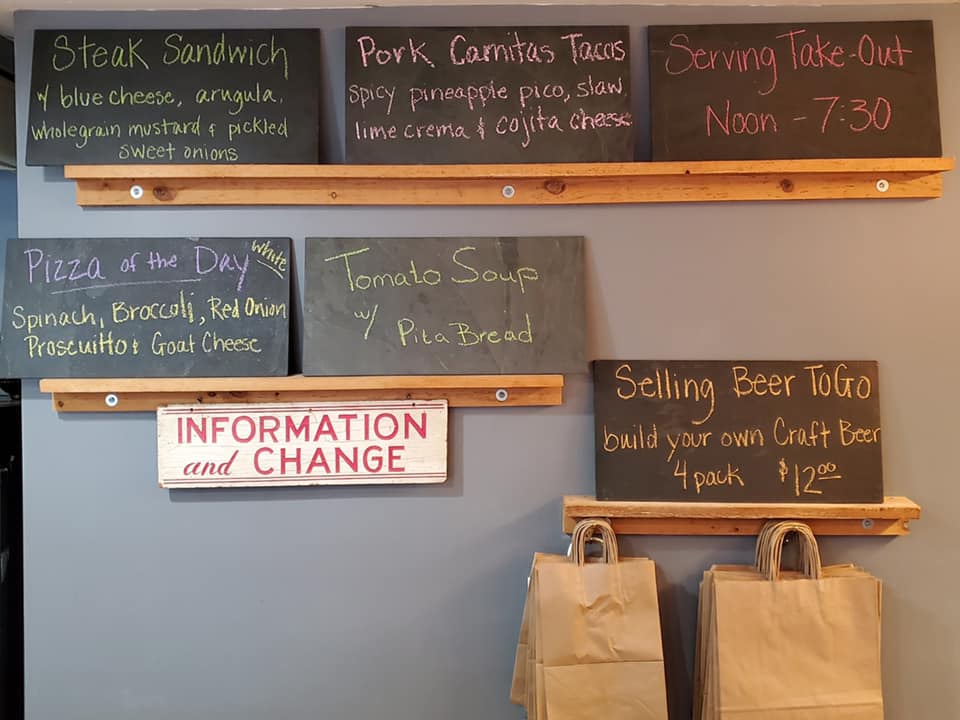 Steak Sandwich
w/ blue cheese, arugula,
wholegrain mustard & pickled
sweet onions
Pork Carnitas Tacos
spicy pineapple pico, slaw,
lime crema & cojita cheese
Serving Take-Out
Noon - 7:30
Pizza of the Day White
Spinach, Broccoli, Red Onion
Proscuitto & Goat Cheese
Tomato Soup
w/ Pita Bread
INFORMATION
and CHANGE
Selling Beer To Go
build your own Craft Beer
4 pack $12.00